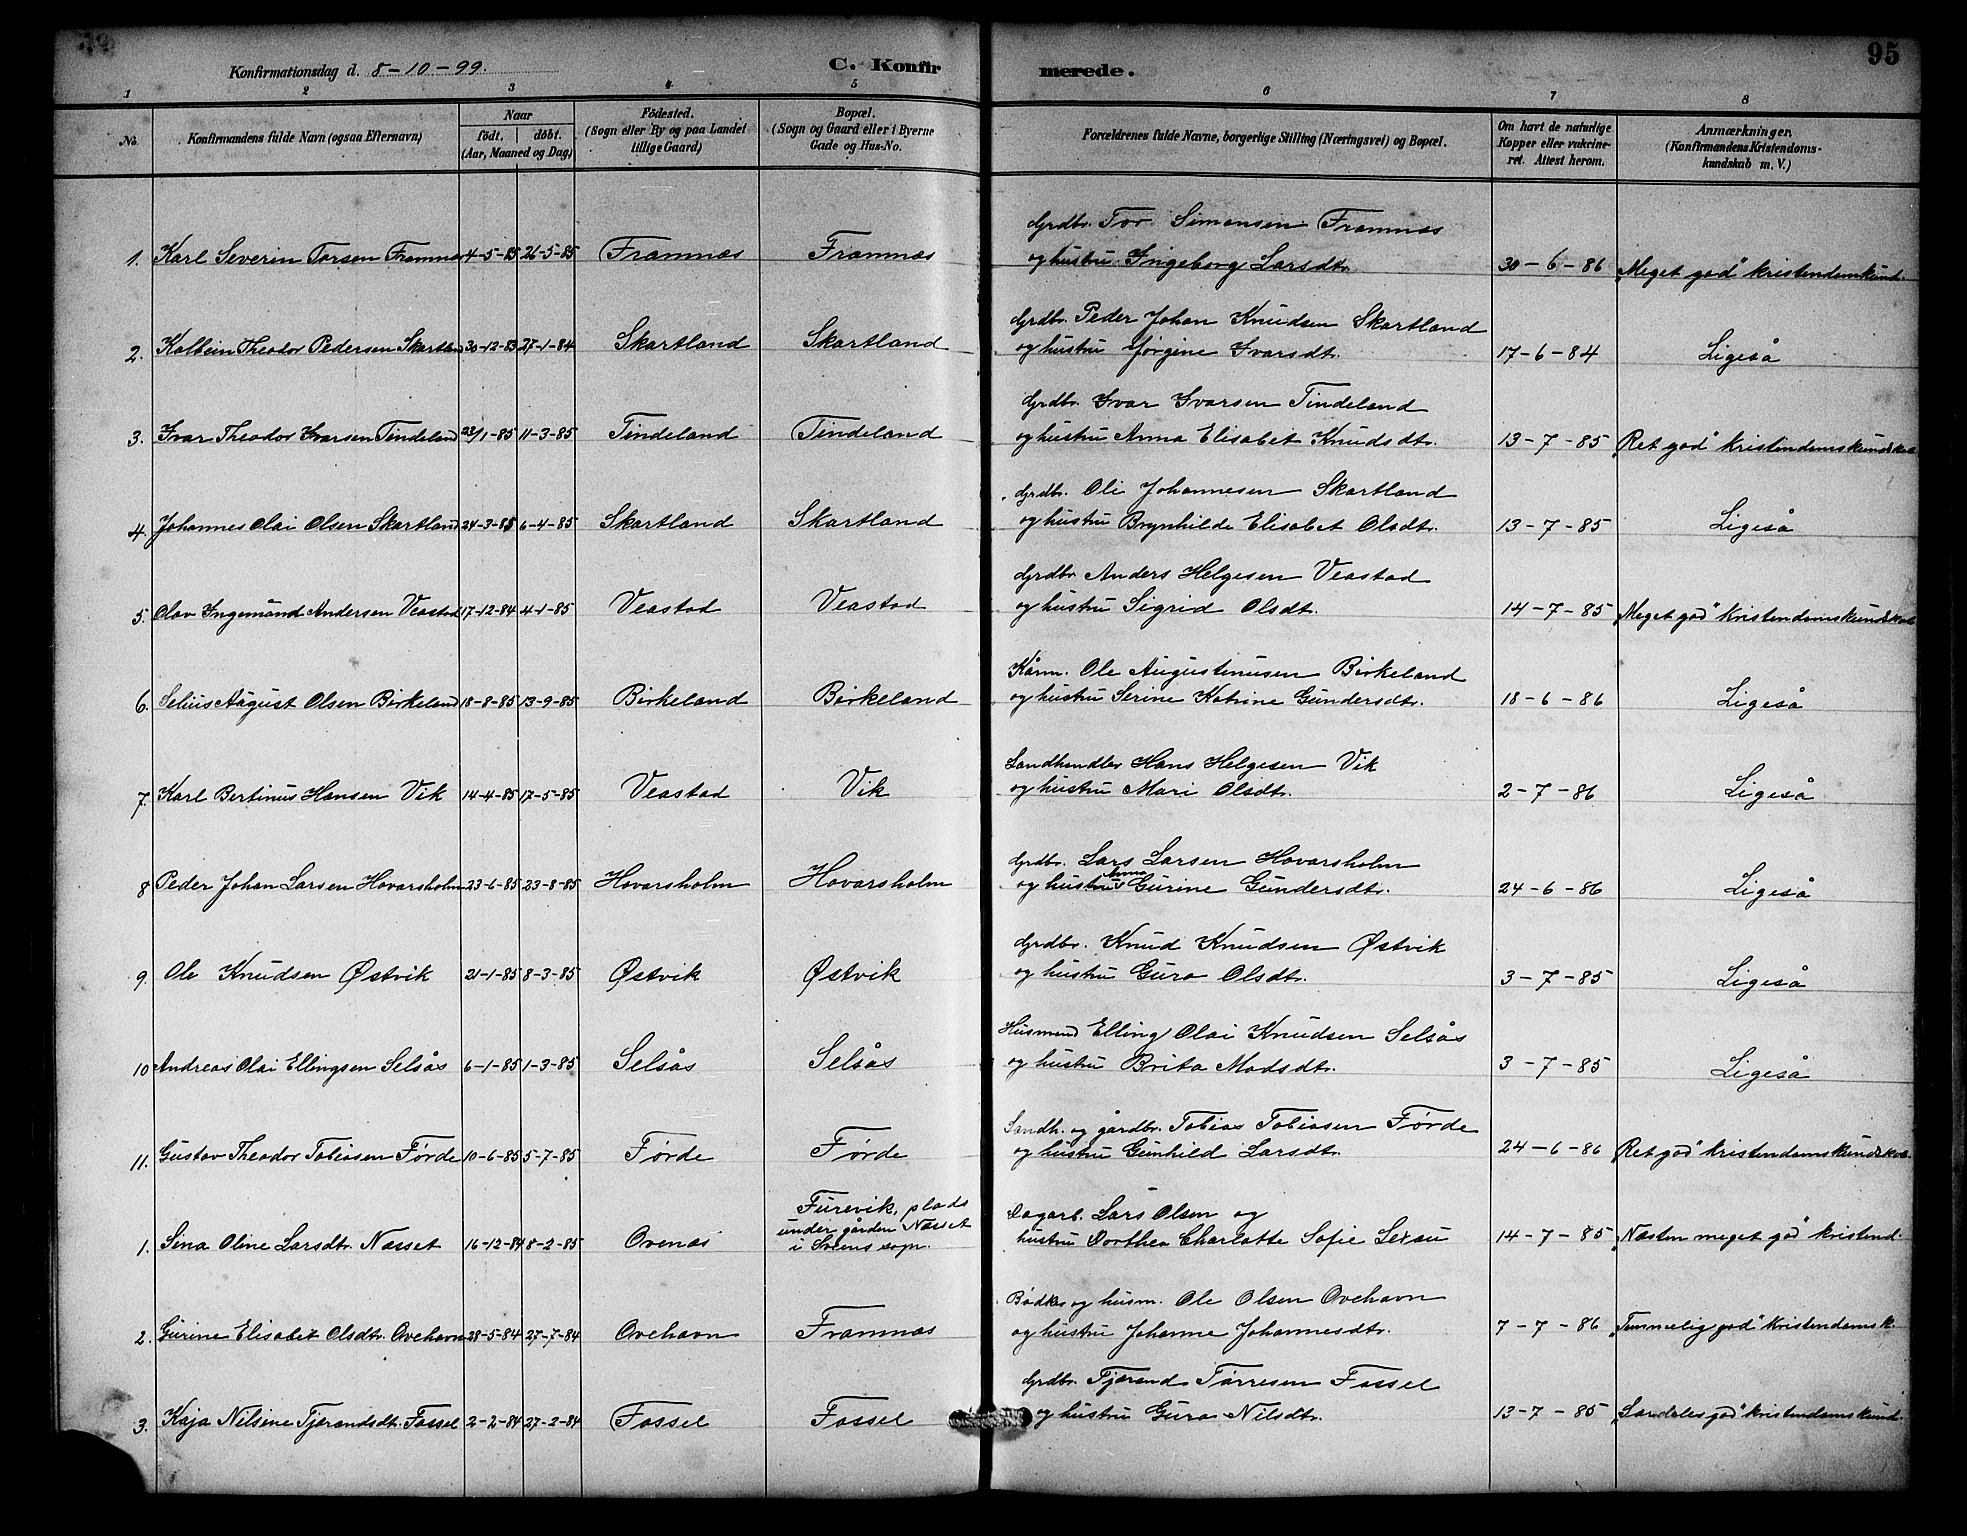 Konfirmationsdag d. 8-10-99.
C. Konfir
merede.
95
1 2 3 4 5 6 7 8
No. Konfirmandens fulde Navn (ogsaa Efternavn) Naar født. døbt. (Aar, Maaned og Dag) Fødested. (Sogn eller By og paa Landet tillige Gaard) Bopæl. (Sogn og Gaard eller i Byerne Gade og Hus-No. Forældrenes fulde Navne, borgerlige Stilling (Næringsvei) og Bopæl. Om havt de naturlige Kopper eller vakcineret. Attest herom. Anmærkninger. (Konfirmandens Kristendomskundskab m. V.)
Grdbr. Tor Simonsen Framnæs
1. Karl Severin Torsen Framnæs 4-5-85 26-5-85 Framnæs Framnæs og hustru Ingeborg Larsdtr. 30-6-86 "Meget god" kristendomskund.
Grdbr. Peder Johan Knudsen Skartland
2. Kolbein Theodor Pedersen Skartland 30-12-83 27-1-84 Skartland Skartland og hustru Jørgine Ivarsdtr. 17-6-84 Ligeså
Grdbr. Ivar Ivarsen Tindeland
3. Ivar Theodor Ivarsen Tindeland 23/1-85 11-3-85 Tindeland Tindeland og hustru Anna Elisabet Knudsdtr. 13-7-85 "Ret god" kristendomskundskab
Grdbr. Oli Johannesen Skartland
4. Johannes Olai Olsen Skartland 24-3-85 6-4-85 Skartland Skartland og hustru Brynhilde Elisabet Olsdtr. 13-7-85 Ligeså
Grdbr. Anders Helgesen Veastad
5. Olav Ingemånd Andersen Veastad 17-12-84 4-1-85 Veastad Veastad og hustru Sigrid Olsdtr. 14-7-85 "Meget god" kristendomskundskab
Kårm. Ole Augustinusen Birkeland
6. Selius August Olsen Birkeland 18-8-85 13-9-85 Birkeland Birkeland og hustru Serine Katrine Gundersdtr. 18-6-86 Ligeså
Landhandler Hans Helgesen Vik
7. Karl Bertinus Hansen Vik 14-4-85 17-5-85 Veastad Vik og hustru Mari Olsdtr. 2-7-86 Ligeså
Grdbr. Lars Larsen Hovarsholm
8. Peder Johan Larsen Hovarsholm 23-6-85 23-8-85 Hovarsholm Hovarsholm og hustru Anna Gurine Gundersdtr. 24-6-86 Ligeså
Grdbr. Knud Knudsen Østvik
9. Ole Knudsen Østvik 21-1-85 8-3-85 Østvik Østvik og hustru Guro Olsdtr. 3-7-85 Ligeså
Husmand Elling Olai Knudsen Selsås
10 Andreas Olai Ellingsen Selsås 6-1-85 1-3-85 Selsås Selsås og hustru Brita Madsdtr. 3-7-85 Ligeså
Landh. og gårdbr. Tobias Tobiasen Førde
11. Gustav Theodor Tobiasen Førde 10-6-85 5-7-85 Førde Førde og hustru Gunhild Larsdtr. 24-6-86 "Ret god" kristendomskundskab.
Furevik, plads
under gården Næsset
i Sveens sogn.
Dagarb. Lars Olsen og
1. Sina Oline Larsdtr. Næsset 16-12-84 8-2-85 Ovenæs hustru Dorthea Charlotte Sofie Lexau 14-7-85 "Næsten meget god" kristend.
Bødker og husm. Ole Olsen Ovehavn
2. Gurine Elisabet Olsdtr. Ovehavn 28-5-84 27-7-84 Ovehavn Framnæs og hustru Johanne Johannesdtr. 7-7-86 "Temmelig god" kristendomsk.
Grdbr. Tjerand Tørresen Fossel
3. Kaja Nilsine Tjerandsdt. Fossel 2-2-84 27-2-84 Fossel Fossel og hustru Guro Nilsdtr. 13-7-85 "Særdeles god" kristendomskund.